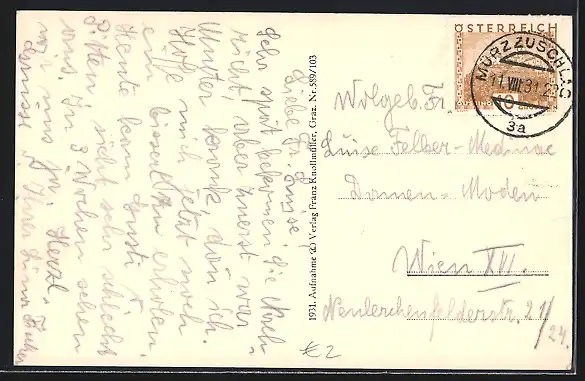 Liebe Fr. Luise!
Sehr spät bekommen Sie Nach-
richt aber zuerst war
Mutter krank dann ich.
Hoffe mich jetzt noch
ein bisserl zu erholen.
Heute kam Gusti v.
Pitten, sieht sehr schlecht
aus. In 3 Wochen sehen
wir uns ja. Herzl.
Grüsse v. Ihrer
1931. Aufnahme u. Verlag Franz Knollmüller, Graz. Nr. 589/103
ÖSTERREICH
MÜRZZUSCHLAG
11.VIII.31
3a
Wolgeb. Fr.
Luise Felber-Medinac
Damen-Moden
Wien XII.
Neulerchenfelderstr. 21
/24.
€2